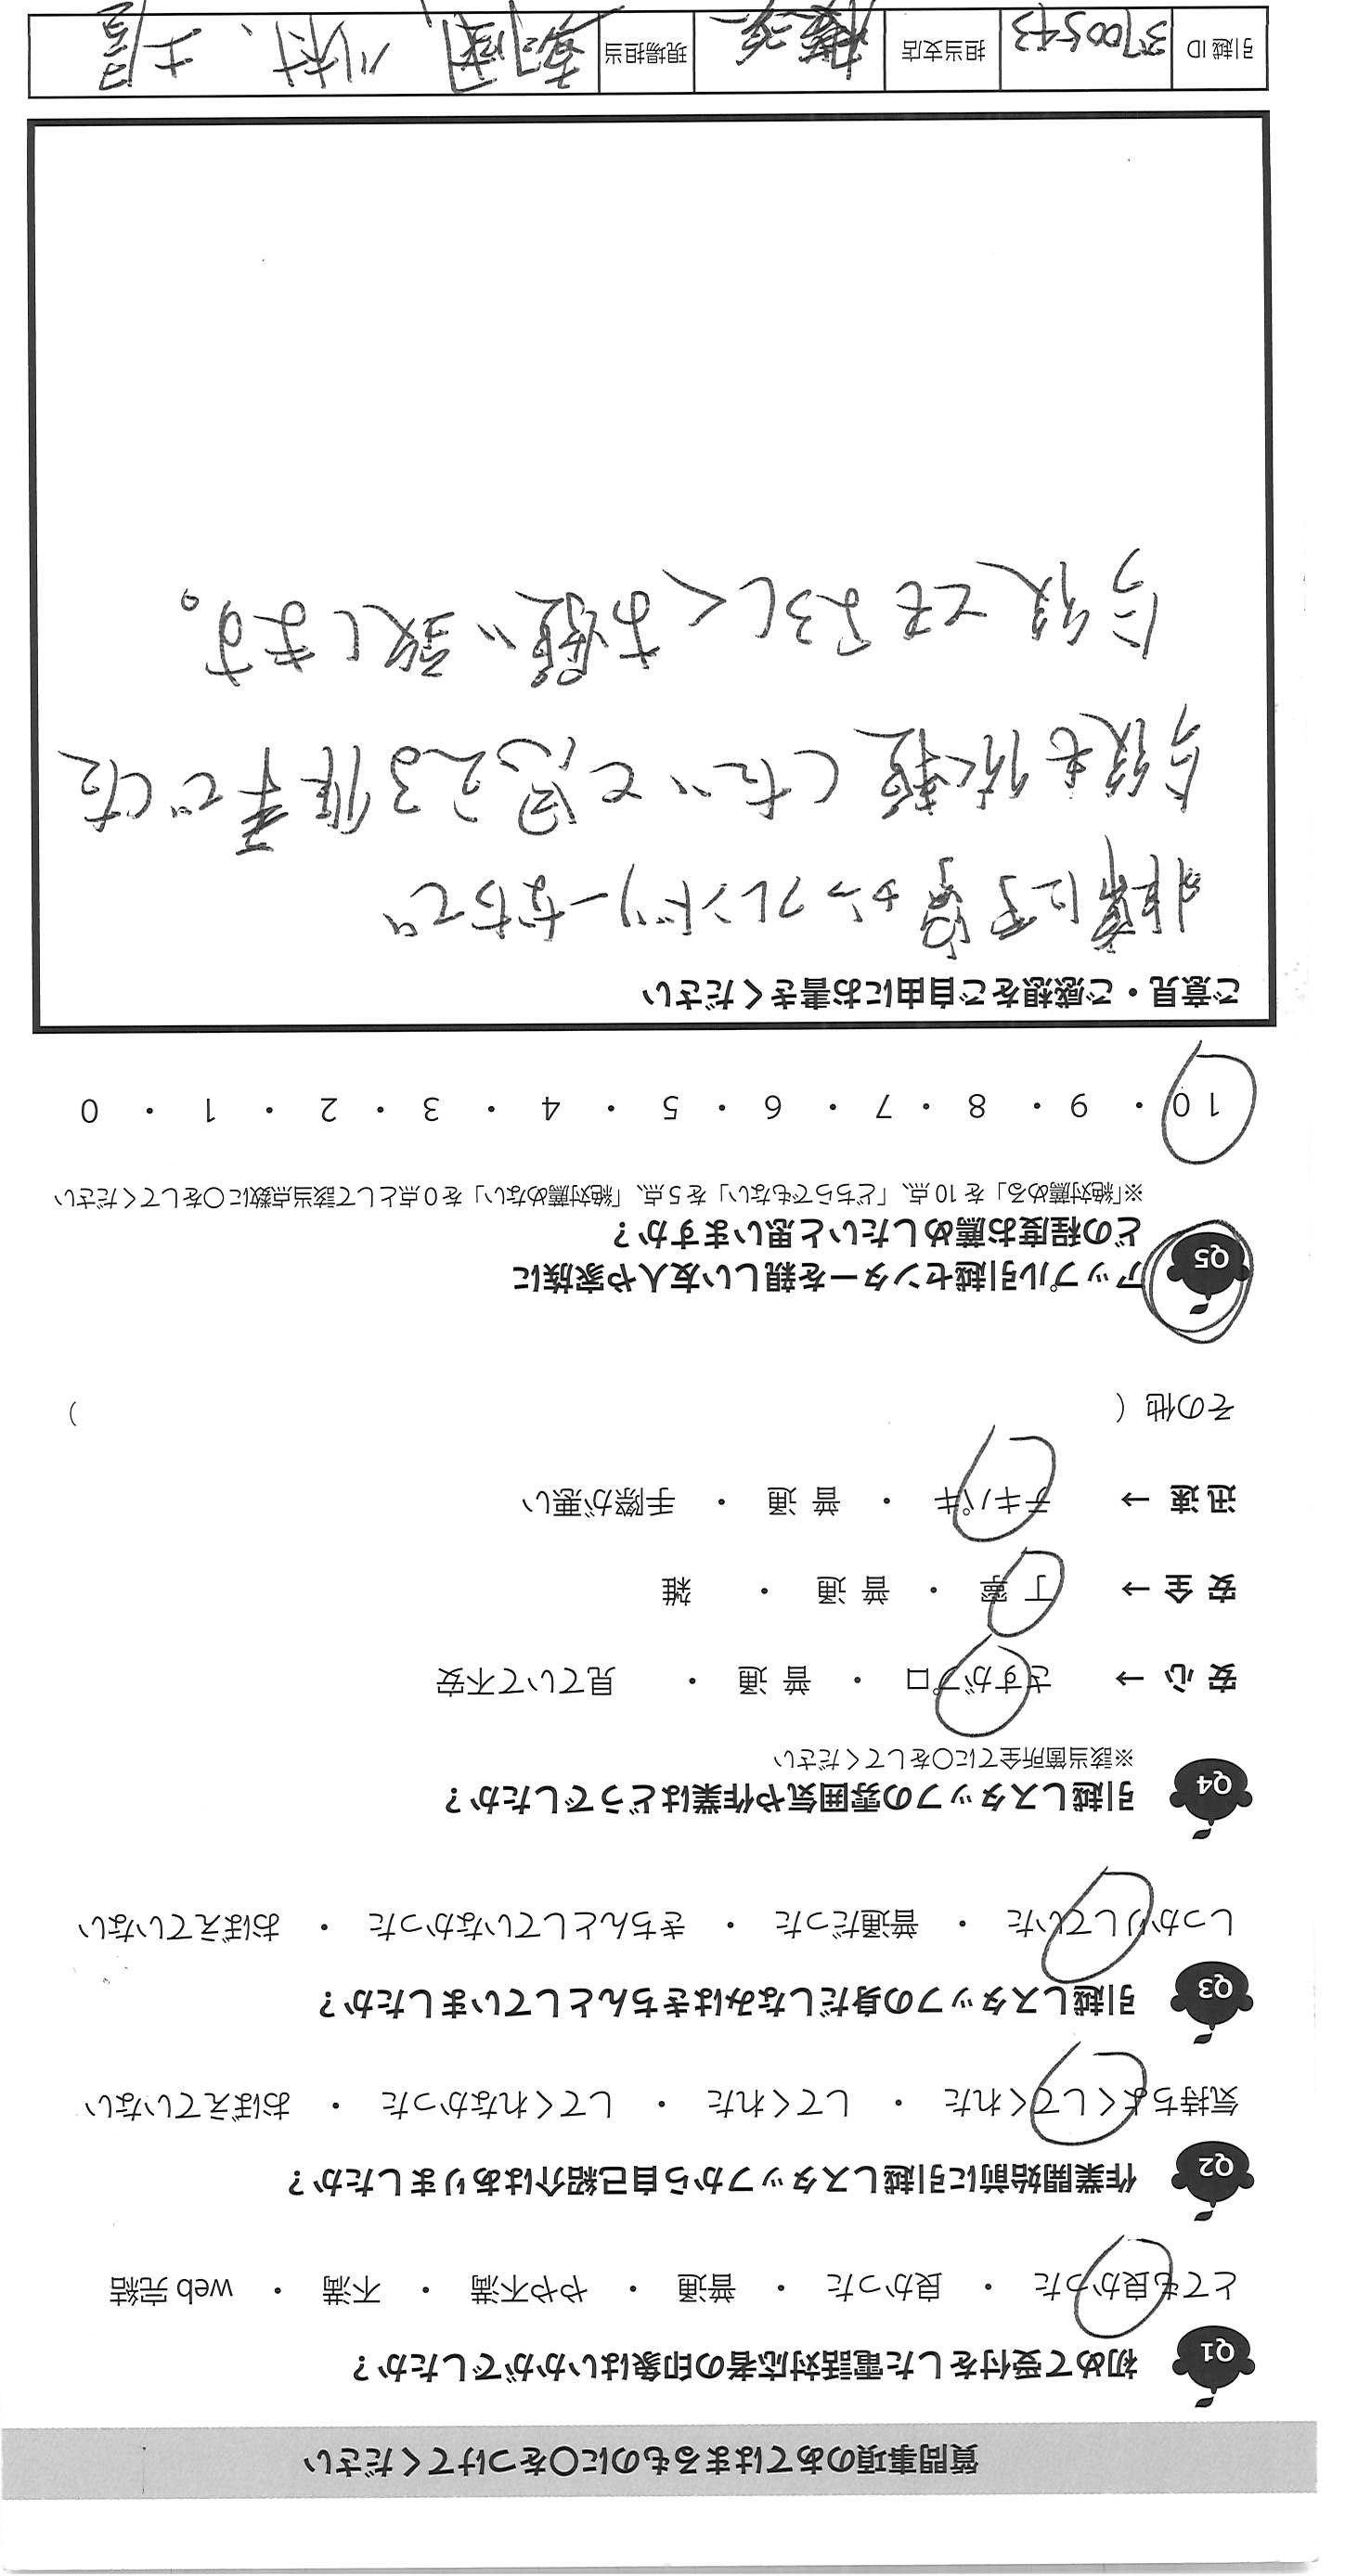 質問事項のあてはまるものに〇をつけてください
Q1 初めて受付をした電話対応者の印象はいかがでしたか？
とても良かった ・ 良かった ・ 普通 ・ やや不満 ・ 不満 ・ web 完結
Q2 作業開始前に引越しスタッフから自己紹介はありましたか？
気持ちよくしてくれた ・ してくれた ・ してくれなかった ・ おぼえていない
Q3 引越しスタッフの身だしなみはきちんとしていましたか？
しっかりしていた ・ 普通だった ・ きちんとしていなかった ・ おぼえていない
Q4 引越しスタッフの雰囲気や作業はどうでしたか？
※該当箇所全てに〇をしてください
安 心 → さすがプロ ・ 普 通 ・ 見ていて不安
安 全 → 丁 寧 ・ 普 通 ・ 雑
迅 速 → テキパキ ・ 普 通 ・ 手際が悪い
その他（ ）
Q5 アップル引越センターを親しい友人や家族に
どの程度お薦めしたいと思いますか？
※「絶対薦める」を 10 点、「どちらでもない」を 5 点、「絶対薦めない」を 0 点として該当点数に〇をしてください
10 ・ 9 ・ 8 ・ 7 ・ 6 ・ 5 ・ 4 ・ 3 ・ 2 ・ 1 ・ 0
ご意見・ご感想をご自由にお書きください
非常に丁寧かつフレンドリーな方で
今後も依頼したいと思える相手でした
今後ともよろしくお願い致します。
引越 ID 3700543 担当支店 現場担当 川村、土屋